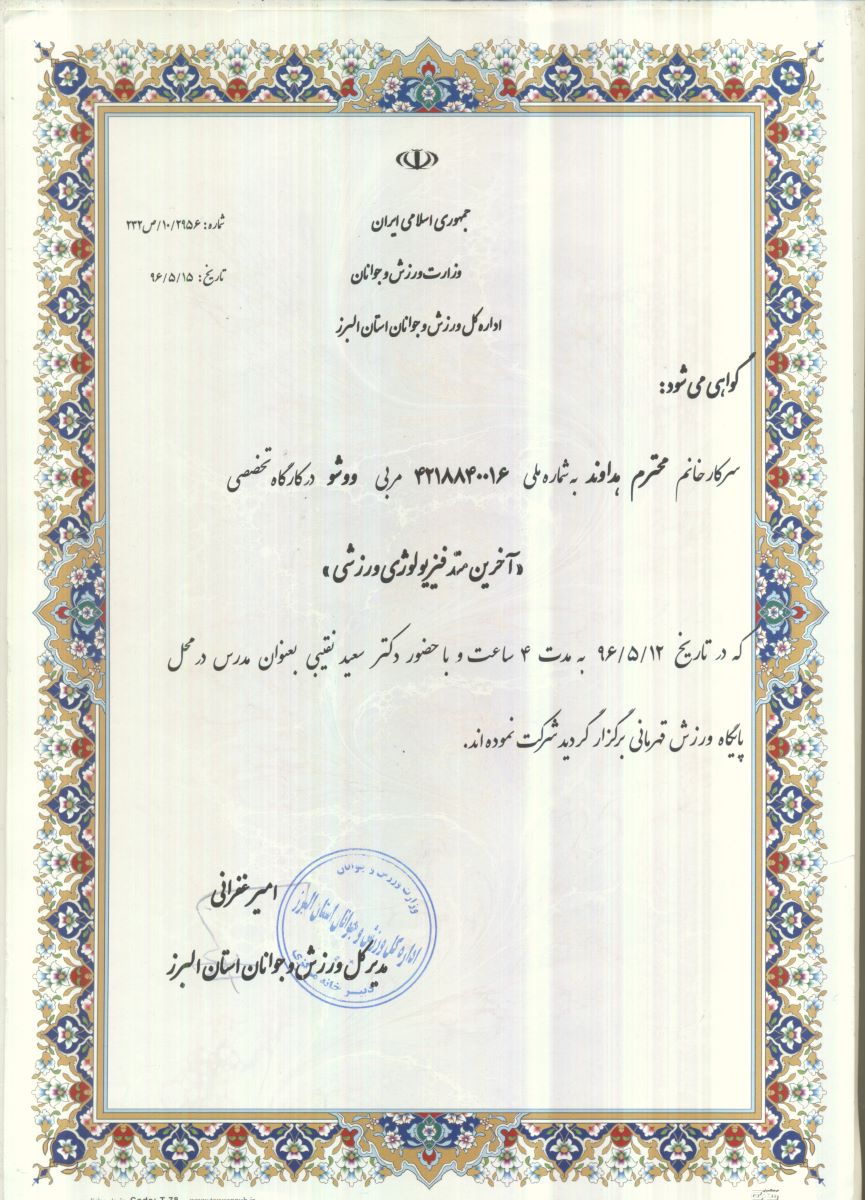 جمهوری اسلامی ایران
شماره: ۲۹۵۶/۱۰/ص۲۳۲
وزارت ورزش و جوانان
تاریخ: ۹۶/۵/۱۵
اداره کل ورزش و جوانان استان البرز
گواهی می شود:
سرکار خانم محترم هداوند به شماره ملی ۴۲۱۸۸۴۰۰۱۶ مربی ووشو در کارگاه تخصصی
«آخرین متد فیزیولوژی ورزشی»
که در تاریخ ۹۶/۵/۱۲ به مدت ۴ ساعت و با حضور دکتر سعید نقیبی بعنوان مدرس در محل
پایگاه ورزش قهرمانی برگزار گردید شرکت نموده اند.
امیر غفرانی
مدیر کل ورزش و جوانان استان البرز
وزارت ورزش و جوانان
اداره کل ورزش و جوانان استان البرز
دبیرخانه
Code: T 78